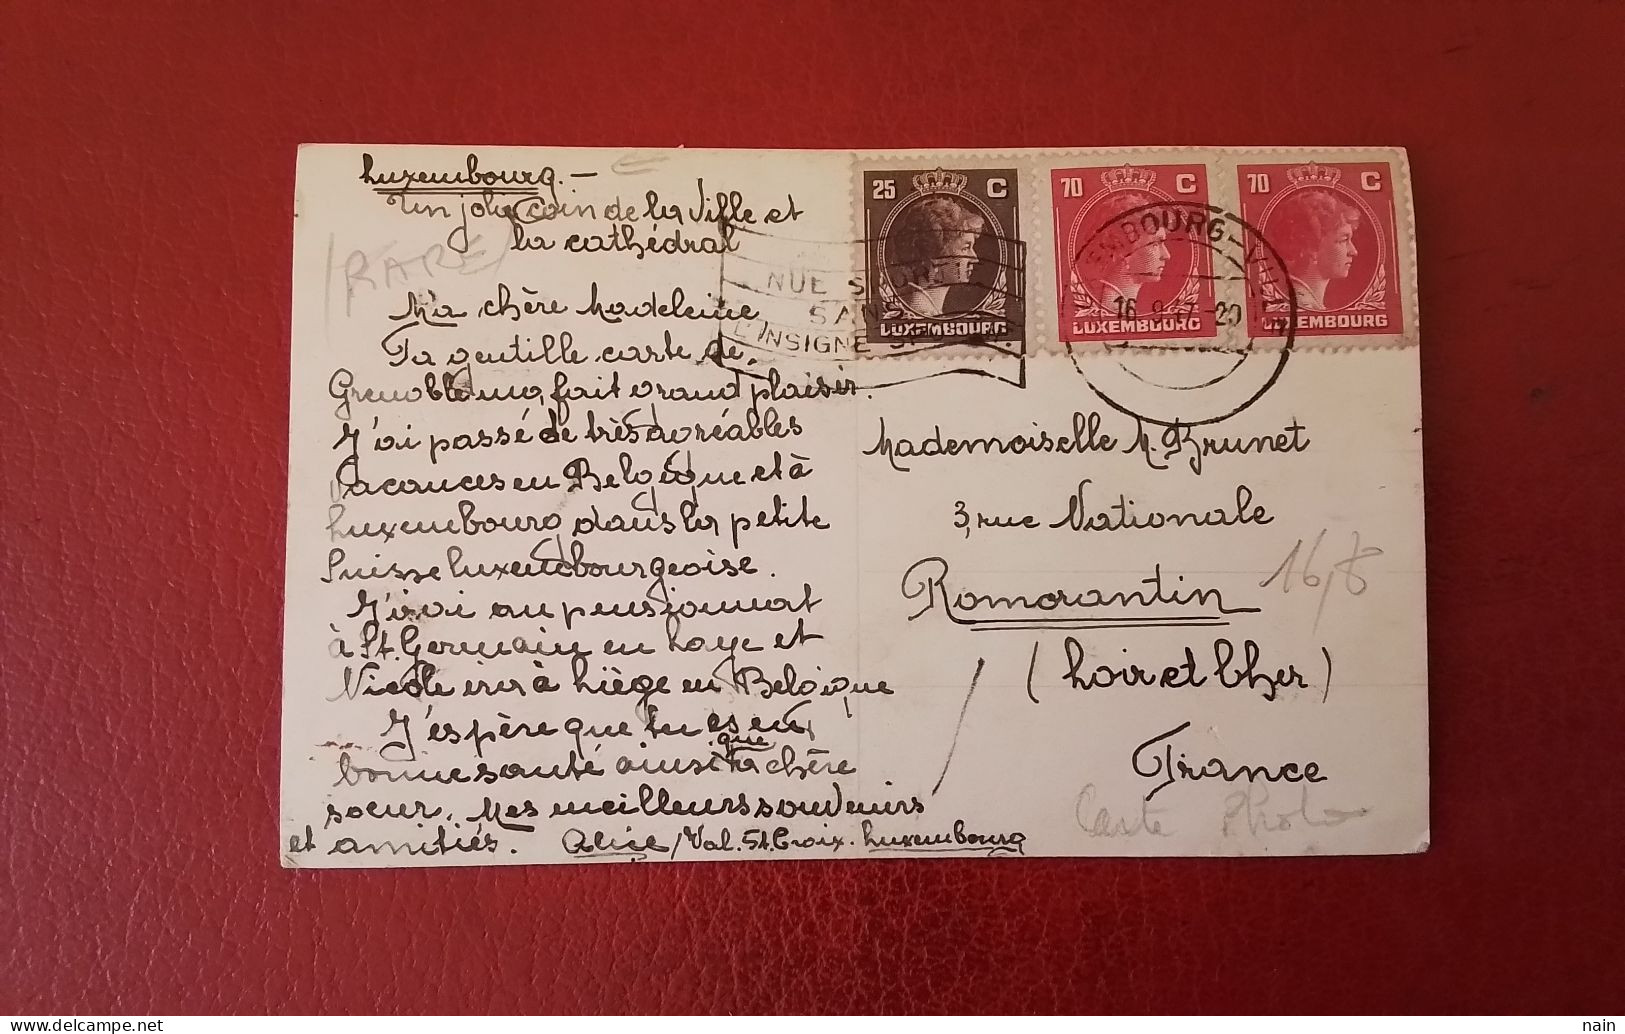 Luxembourg. -
Un joli coin de la Ville et
la cathédral
(RARE)
Ma chère Madeleine
Ta gentille carte de
Grenoble m'a fait grand plaisir.
J'ai passé de très agréables
vacances en Belgique et à
Luxembourg dans la petite
Suisse luxembourgeoise.
J'irai au pensionnat
à St. Germain en Laye et
Nicole ira à Liège en Belgique
J'espère que tu es en
bonne santé ainsi que ta chère
soeur. Mes meilleurs souvenirs
et amitiés. Alice / Val. St. Croix. Luxembourg
25 C
LUXEMBOURG
70 C
LUXEMBOURG
70 C
LUXEMBOURG
NUE S
SANS
L'INSIGNE
EMBOURG-VI
16. -20
Mademoiselle M. Brunet
3, rue Nationale
Romorantin
16,8
(Loir et Cher)
France
Carte Photo
nain
www.delcampe.net